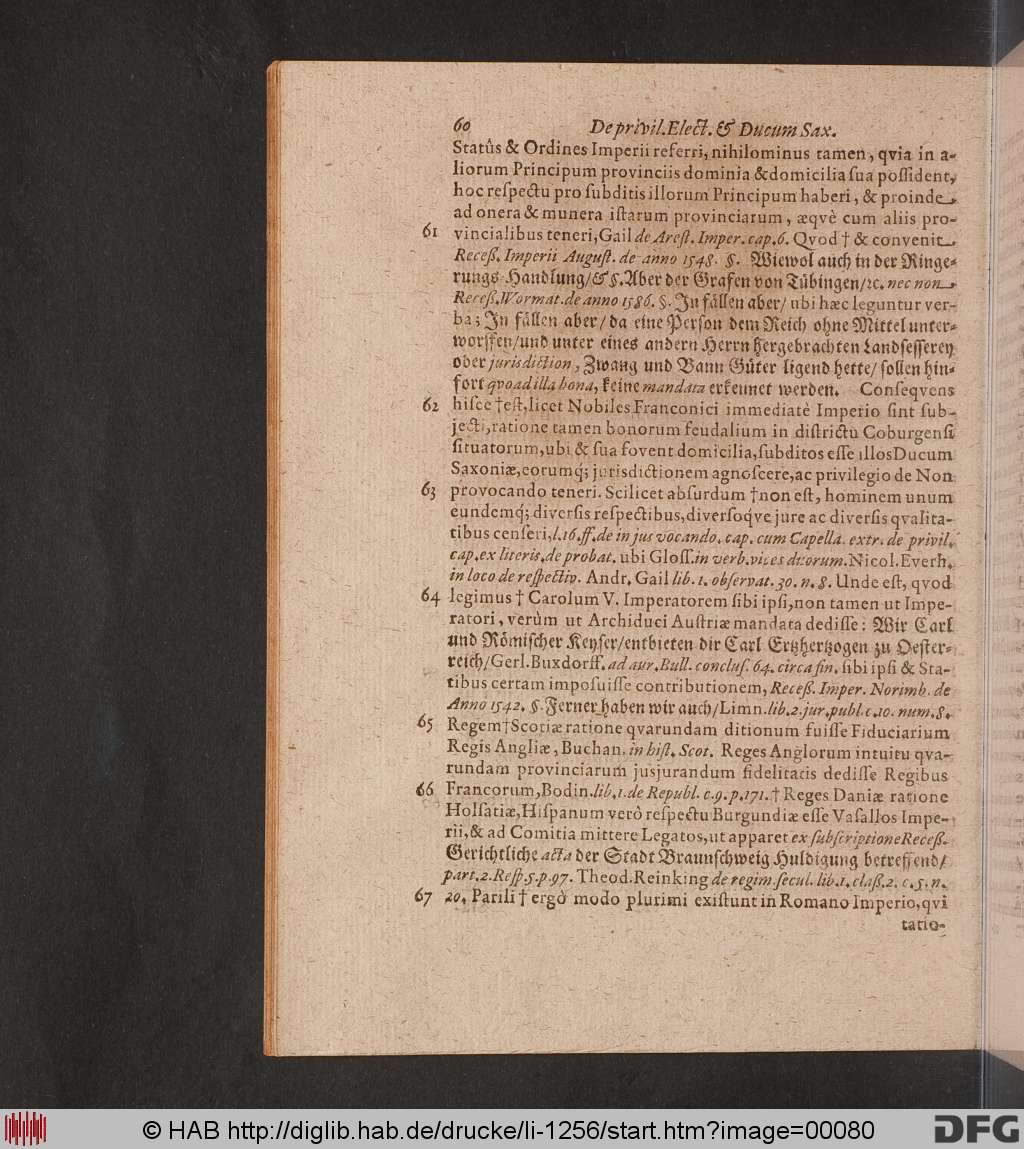 60 De privil. Elect. & Ducum Sax.
Statûs & Ordines Imperii referri, nihilominus tamen, qvia in a-
liorum Principum provinciis dominia & domicilia sua possident,
hoc respectu pro subditis illorum Principum haberi, & proinde
ad onera & munera istarum provinciarum, æqvè cum aliis pro-
61 vincialibus teneri, Gail de Arest. Imper. cap. 6. Qvod † & convenit
Receß. Imperii August. de anno 1548. §. Wiewol auch in der Ringe-
rungs-Handlung/ & §. Aber der Grafen von Tübingen/ ꝛc. nec non
Receß. Wormat. de anno 1586. §. Jn fällen aber/ ubi hæc leguntur ver-
ba; Jn fällen aber/ da eine Person dem Reich ohne Mittel unter-
worffen/ und unter eines andern Herrn hergebrachten Landsesserey
oder jurisdiction, Zwang und Bann Güter ligend hette/ sollen hin-
fort qvoad illa bona, keine mandata erkennet werden. Conseqvens
62 hisce † est, licet Nobiles Franconici immediatè Imperio sint sub-
jecti, ratione tamen bonorum feudalium in districtu Coburgensi
situatorum, ubi & sua fovent domicilia, subditos esse illos Ducum
Saxoniæ, eorumq́; jurisdictionem agnoscere, ac privilegio de Non
63 provocando teneri. Scilicet absurdum † non est, hominem unum
eundemq́; diversis respectibus, diversoqve jure ac diversis qvalita-
tibus censeri, l. 16. ff. de in jus vocando. cap. cum Capella. extr. de privil.
cap. ex literis. de probat. ubi Gloss. in verb. vices duorum. Nicol. Everh.
in loco de respectiv. Andr. Gail lib. 1. observat. 30. n. 8. Unde est, qvod
64 legimus † Carolum V. Imperatorem sibi ipsi, non tamen ut Impe-
ratori, verùm ut Archiduci Austriæ mandata dedisse: Wir Carl
und Römischer Keyser/ entbieten dir Carl Ertzhertzogen zu Oester-
reich/ Gerl. Buxdorff. ad aur. Bull. conclus. 64. circa fin. sibi ipsi & Sta-
tibus certam imposuisse contributionem, Receß. Imper. Norimb. de
Anno 1542. §. Ferner haben wir auch/ Limn. lib. 2. jur. publ. c. 10. num. 8.
65 Regem † Scotiæ ratione qvarundam ditionum fuisse Fiduciarium
Regis Angliæ, Buchan. in hist. Scot. Reges Anglorum intuitu qva-
rundam provinciarum jusjurandum fidelitatis dedisse Regibus
66 Francorum, Bodin. lib. 1. de Republ. c. 9. p. 171. † Reges Daniæ ratione
Holsatiæ, Hispanum verò respectu Burgundiæ esse Vasallos Impe-
rii, & ad Comitia mittere Legatos, ut apparet ex subscriptione Receß.
Gerichtliche acta der Stadt Braunschweig Huldigung betreffend/
part. 2. Resp. 5. p. 97. Theod. Reinking de regim. secul. lib. 1. claß. 2. c. 5. n.
67 20. Parili † ergò modo plurimi existunt in Romano Imperio, qvi
ratio-
© HAB http://diglib.hab.de/drucke/li-1256/start.htm?image=00080
DFG